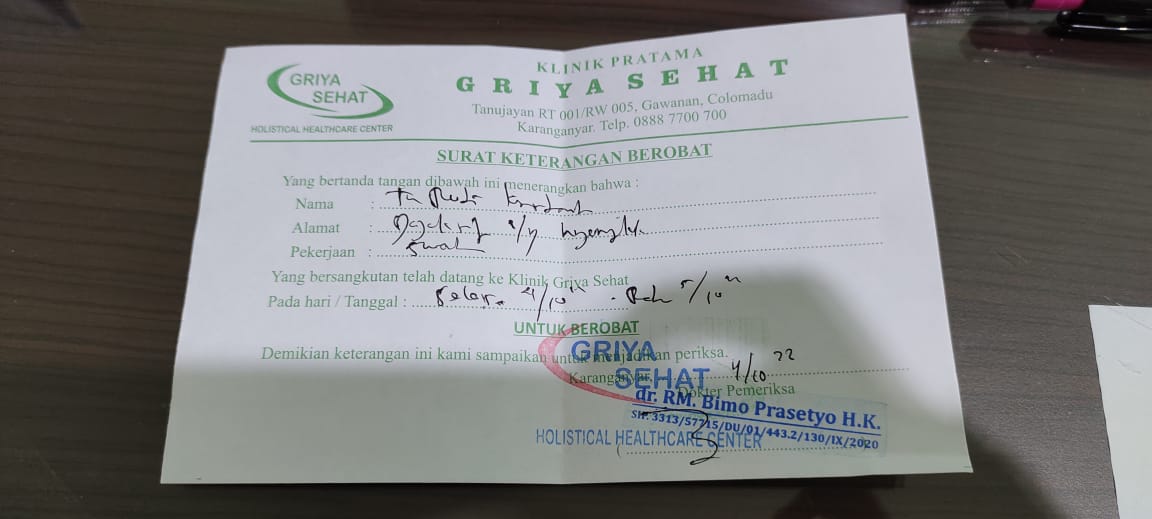 GRIYA
SEHAT
HOLISTICAL HEALTHCARE CENTER
KLINIK PRATAMA
GRIYA SEHAT
Tanujayan RT 001/RW 005, Gawanan, Colomadu
Karanganyar. Telp. 0888 7700 700
SURAT KETERANGAN BEROBAT
Yang bertanda tangan dibawah ini menerangkan bahwa :
Nama :
Alamat :
Pekerjaan :
Yang bersangkutan telah datang ke Klinik Griya Sehat
Pada hari / Tanggal : 4/10 5/10
UNTUK BEROBAT
Demikian keterangan ini kami sampaikan untuk menjadikan periksa.
Karanganyar, 4/10 22
Dokter Pemeriksa
GRIYA
SEHAT
HOLISTICAL HEALTHCARE CENTER
dr. RM. Bimo Prasetyo H.K.
SIP. 3313/57715/DU/01/443.2/130/IX/2020